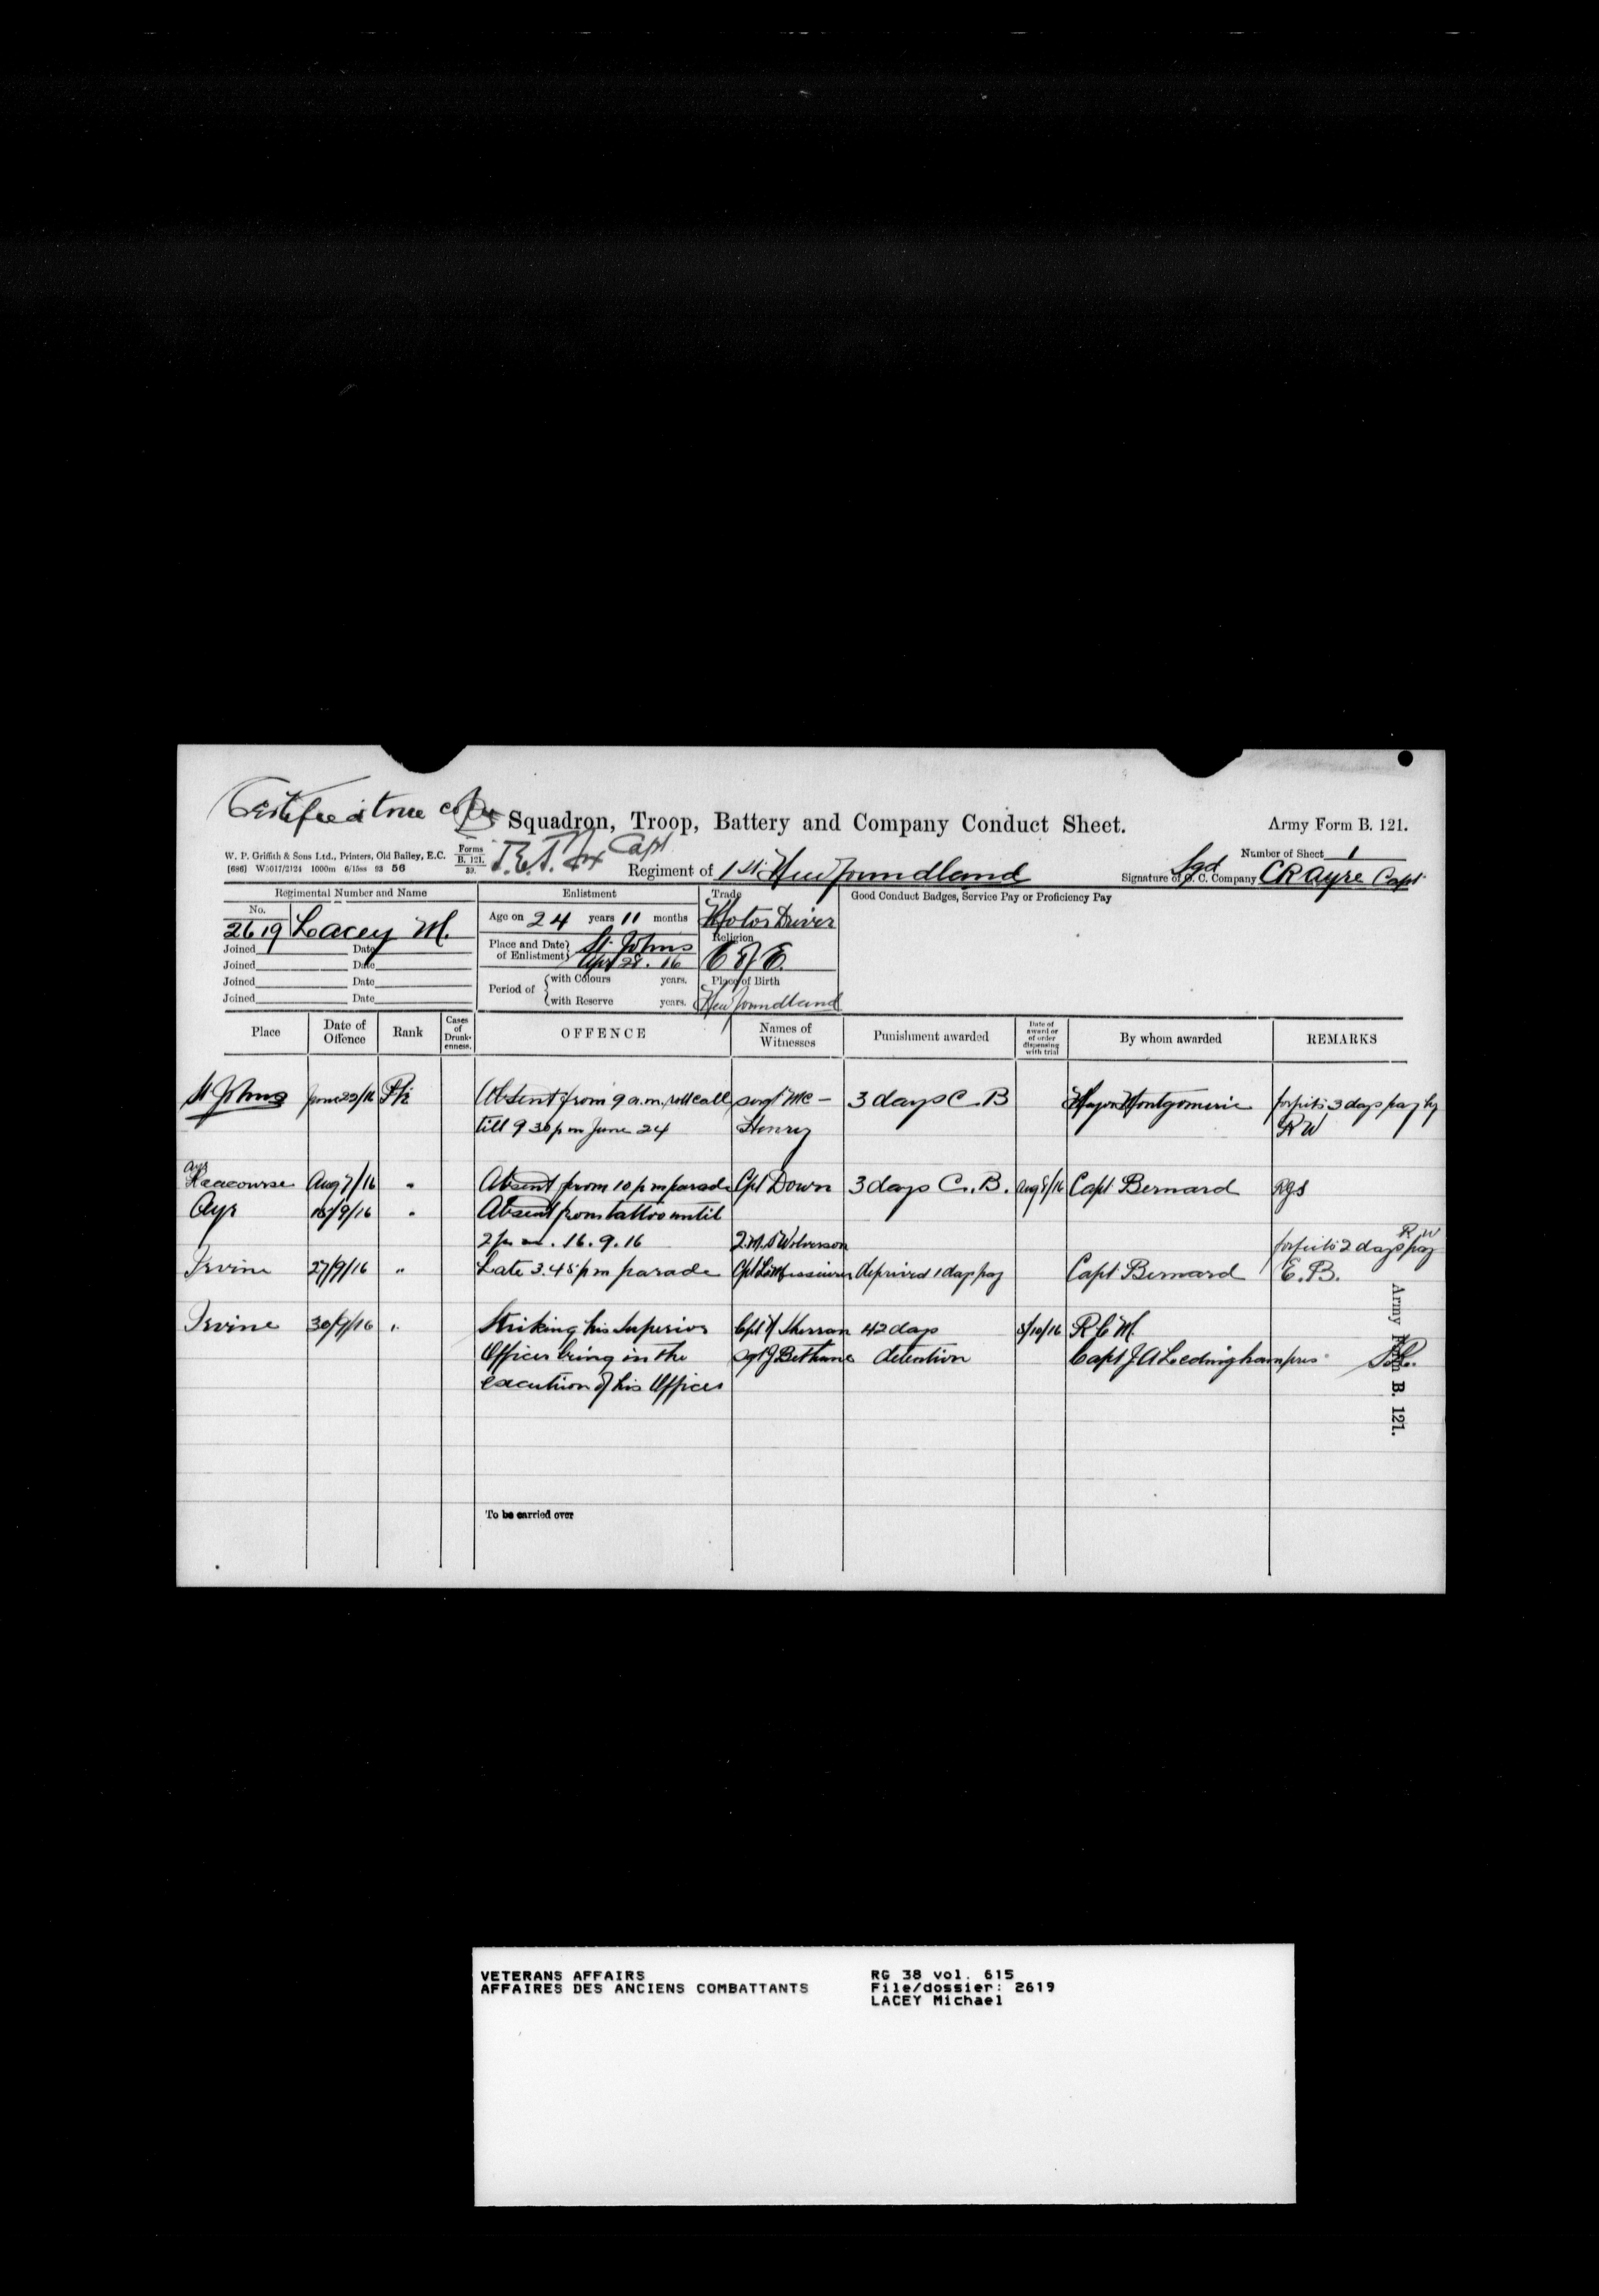 Certified true copy
Squadron, Troop, Battery and Company Conduct Sheet.
Army Form B. 121.
W. P. Griffith & Sons Ltd., Printers, Old Bailey, E.C.
[686] W5017/2124 1000m 6/15ms 93 56
Forms
B. 121.
39.
Capt
Regiment of 1st Newfoundland
Number of Sheet 1
Sgd
Signature of O. C. Company CR Ayre Capt
Regimental Number and Name
No.
2619 Lacey M.
Joined Date
Joined Date
Joined Date
Joined Date
Enlistment
Age on 24 years 11 months
Place and Date of Enlistment St. Johns
Apr 28. 16
Period of with Colours years.
with Reserve years.
Trade
Motor Driver
Religion
C of E.
Place of Birth
Newfoundland
Good Conduct Badges, Service Pay or Proficiency Pay
Place
Date of Offence
Rank
Cases of Drunkenness.
OFFENCE
Names of Witnesses
Punishment awarded
Date of award or of order dispensing with trial
By whom awarded
REMARKS
St Johns June 22/16 Pte Absent from 9 a.m. rollcall Sergt Mc- 3 days C.B Major Montgomerie forfeits 3 days pay by
till 9 30 p m June 24 Henry RW
Ayr
Racecourse Aug 7/16 " Absent from 10 p m parade Cpl Down 3 days C.B. Aug 8/16 Capt Bernard RGS
Ayr /9/16 " Absent from tattoo until
2 p m. 16. 9. 16 Q.M.S Wolverson forfeits 2 days pay RW
Irvine 27/9/16 " Late 3.45 p m parade Cpl deprived 1 day pay Capt Bernard E.B.
Irvine 30/9/16 " Striking his Superior Cpl Y Sherran 42 days 5/10/16 R C M.
Officer being in the Sgt J Bethune detention Capt J A Ledingham pres
execution of his Office
To be carried over
Army Form B. 121.
VETERANS AFFAIRS
AFFAIRES DES ANCIENS COMBATTANTS
RG 38 vol. 615
File/dossier: 2619
LACEY Michael